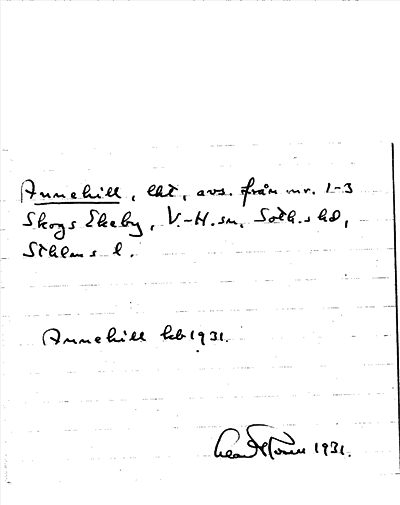 Annehill, lht, avs. från nr. 1-3
Skogs Ekeby, V.-H. sn, Soth. s hd,
Sthlms l.
Annehill kb 1931.
1931.